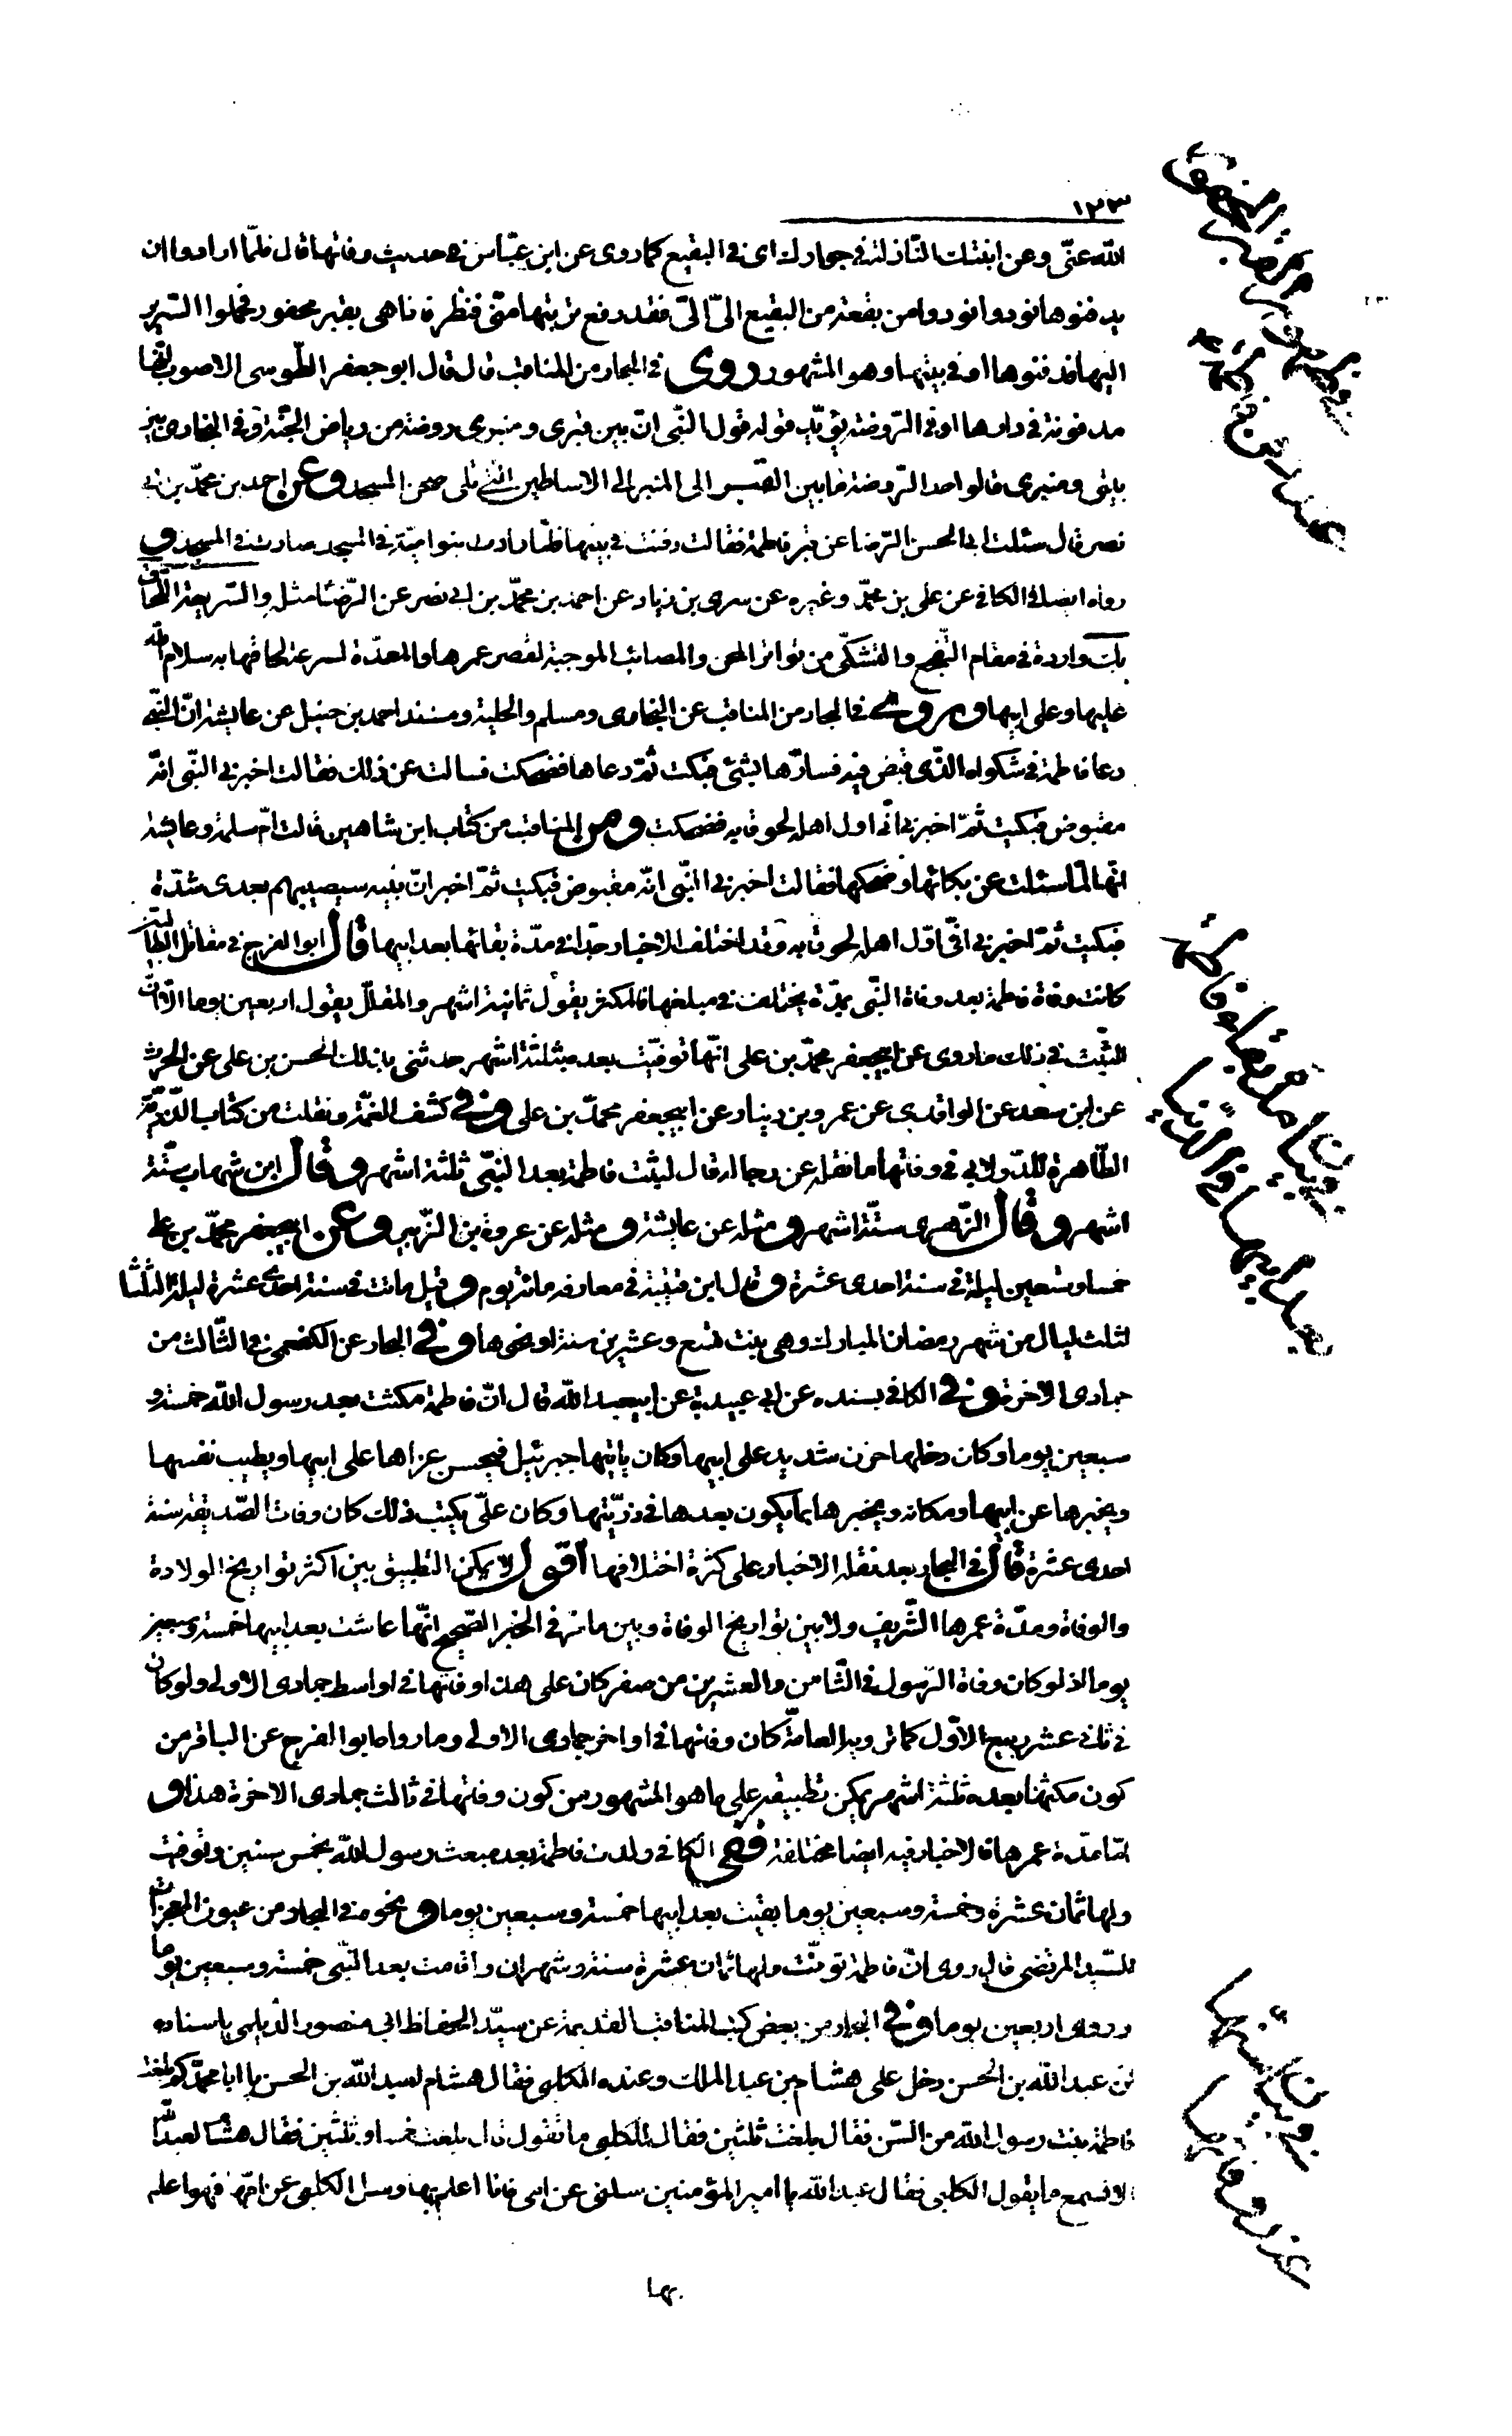 ١٢٣
الله عنّي وعن ابنتك النّازلة في جوارك اى في البقيع كما روى عن ابن عبّاس في حديث وفاتها قال فلمّا ارادوا ان
يدفنوها نودوا نودوا من بقعة من البقيع الىّ الىّ فقد رفع تربتها منّى فنظره فاهى بقبر محفور فحملوا السّرير
اليها فدفنوها او في بيتها وهو المشهور روى في البحار من المناقب قال قال ابو جعفر الطّوسى الاصوب انّها
مدفونة في دارها او في الرّوضة يؤيّد قوله قول النّبى انّ بين قبرى ومنبرى روضة من رياض الجنّة وفى البخارى بين
بيتى ومنبرى قالوا حد الرّوضة ما بين القبر الى المنبر الى الاساطين الّتى تلى صحن المسجد وعن احمد بن محمّد بن ابى
نصر قال سئلت ابى الحسن الرّضا عن قبر فاطمة فقالت دفنت في بيتها فلمّا زادت بنوا اميّة في المسجد صارت في المسجد و
رواه ايضا في الكافى عن على بن محمّد وغيره عن سرى بن زياد عن احمد بن محمّد بن ابى نصر عن الرّضا مثله والسّريعة اللّحاق
بك واردة في مقام التّفجع والتشكّى من تواتر المحن والمصائب الموجبة لقصر عمرها والمعدّة لسرعة لحاقها به سلام الله
عليها وعلى ابيها وروى في البحار من المناقب عن البخارى ومسلم والحلية ومسند احمد بن حنبل عن عايشة انّ النّبى
دعا فاطمة في شكواه الّذى قبض فيه فسارّها بشئ فبكت ثمّ دعاها فضحكت فسالت عن ذلك فقالت اخبرنى النّبى انّه
مقبوض فبكيت ثمّ اخبرنى انّى اول اهله لحوقا به فضحكت ومن المناقب من كتاب ابن شاهين قالت امّ سلمة وعايشة
انّها لمّا سئلت عن بكائها وضحكها فقالت اخبرنى النّبى انّه مقبوض فبكيت ثمّ اخبر انّ بنيه سيصيبهم بعدى شدّة
فبكيت ثمّ اخبرنى انّى اوّل اهله لحوقا به وقد اختلف الاخبار جدّا في مدّة بقائها بعد ابيها قال ابو الفرج في مقاتل الطّالبيّين
كانت وفاة فاطمة بعد وفاة النّبى بمدّة يختلف في مبلغها فالمكثر يقول ثمانية اشهر والمقلّل يقول اربعين يوما الّا انّ
الثّبت في ذلك ما روى عن ابيجعفر محمّد بن على انّها توفّيت بعده بثلثة اشهر حدثنى بذلك الحسن بن على عن الحرث
عن ابن سعد عن الواقدى عن عمرو بن دينار عن ابيجعفر محمّد بن على وفى كشف الغمّة ونقلت من كتاب الذّرّيّة
الطّاهرة للدّولابى في وفاتها ما نقله عن رجاله قال لبثت فاطمة بعد النّبى ثلثة اشهر وقال ابن شهاب ستّة
اشهر وقال الزّهرى ستّة اشهر ومثله عن عايشة ومثله عن عروة بن الزّبير وعن ابيجعفر محمّد بن على
خمسا وتسعين ليلة في سنة احدى عشرة وقال ابن قتيبة في معارفه مائة يوم وقيل ماتت في سنة احدى عشرة ليلة الثّلثا
لثلث ليال من شهر رمضان المبارك وهى بنت تسع وعشرين سنة او نحوها وفى البحار عن الكفعمى في الثّالث من
جمادى الاخرة وفى الكافى بسنده عن ابى عبيدة عن ابيعبد الله قال انّ فاطمة مكثت بعد رسول الله خمسة و
سبعين يوما وكان دخلها حزن شديد على ابيها وكان ياتيها جبرئيل فيحسن عزاها على ابيها ويطيب نفسها
ويخبرها عن ابيها ومكانه ويخبرها بما يكون بعدها في ذرّيّتها وكان علىّ يكتب ذلك كان وفات الصّديقة سنة
احدى عشرة قال في البحار بعد نقله الاخبار على كثرة اختلافها أقول لا يمكن التطبيق بين اكثر تواريخ الولادة
والوفاة ومدّة عمرها الشّريف ولا بين تواريخ الوفاة وبين ما مرّ في الخبر الصّحيح انّها عاشت بعد ابيها خمسة وسبعين
يوما اذ لو كان وفاة الرّسول في الثّامن والعشرين من صفر كان على هذا وفاتها في اواسط جمادى الاولى ولو كان
في ثانى عشر ربيع الاوّل كما ترويه العامّة كان وفاتها في اواخر جمادى الاولى وما رواه ابو الفرج عن الباقر من
كون مكثها بعده ثلثة اشهر يمكن تطبيقه على ما هو المشهور من كون وفاتها في ثالث جمادى الاخرة هذا و
امّا مدّة عمرها فالاخبار فيه ايضا مختلفة ففى الكافى ولدت فاطمة بعد مبعث رسول الله بخمس سنين وتوفيت
ولها ثمان عشرة وخمسة وسبعين يوما بقيت بعد ابيها خمسة وسبعين يوما ونحوه في البحار من عيون المعجزات
للسّيد المرتضى قال روى انّ فاطمة توفّت ولها ثمان عشرة سنة وشهران واقامت بعد النّبى خمسة وسبعين يوما
وروى اربعين يوما وفى البحار من بعض كتب المناقب القديمة عن سيّد الحفاظ ابى منصور الدّيلمى باسناده
ان عبد الله بن الحسن دخل على هشام بن عبد الملك وعنده الكلبى فقال هشام لعبد الله بن الحسن يا ابا محمّد كم بلغت
فاطمة بنت رسول الله من السّن فقال بلغت ثلثين فقال للكلبى ما تقول قال بلغت خمسا وثلثين فقال هشام لعبد الله
الا تسمع ما يقول الكلبى فقال عبد الله يا امير المؤمنين سلنى عن امى فانا اعلم بها وسل الكلبى عن امّه فهو اعلم
بها